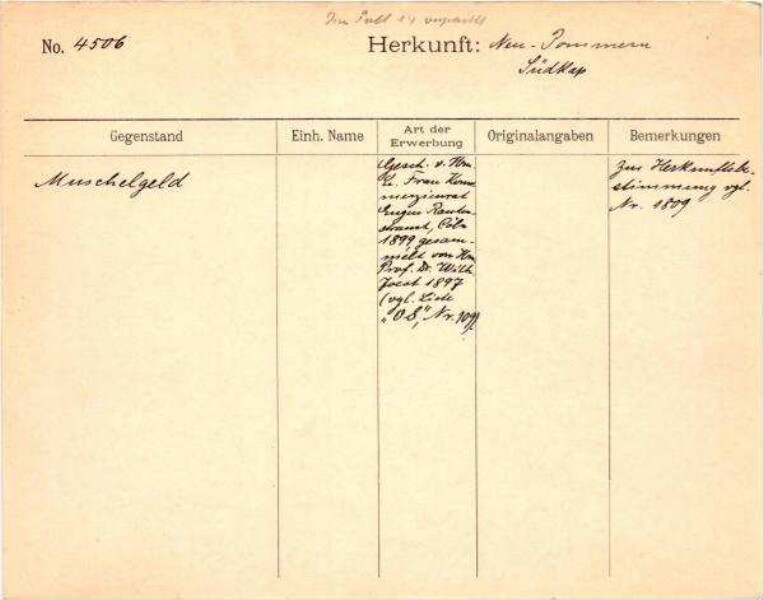 No. 4506
Herkunft: Neu-Pommern
Südkap
Gegenstand
Einh. Name
Art der
Erwerbung
Originalangaben
Bemerkungen
Muschelgeld
Gesch. v. Hrn
u. Frau Kom-
merzienrat
Eugen Rauten-
strauch, Cöln
1899, gesam-
melt von Hrn
Prof. Dr. Wilh.
Joest 1897
(vgl. Liste
"O S," Nr. 109)
Zur Herkunftsbe-
stimmung vgl.
Nr. 1809